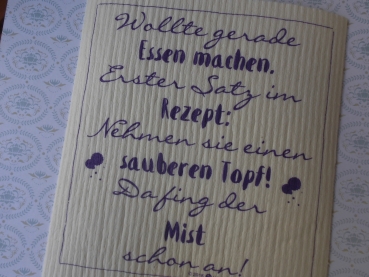 Wollte gerade
Essen machen.
Erster Satz im
Rezept:
Nehmen sie einen
sauberen Topf!
Da fing der
Mist
schon an!